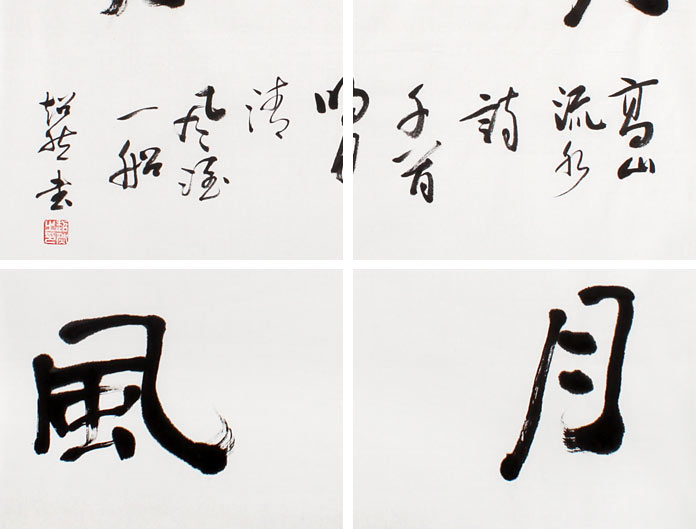 高山
流水
詩
千首
明月
清
風酒
一船
書
月
風